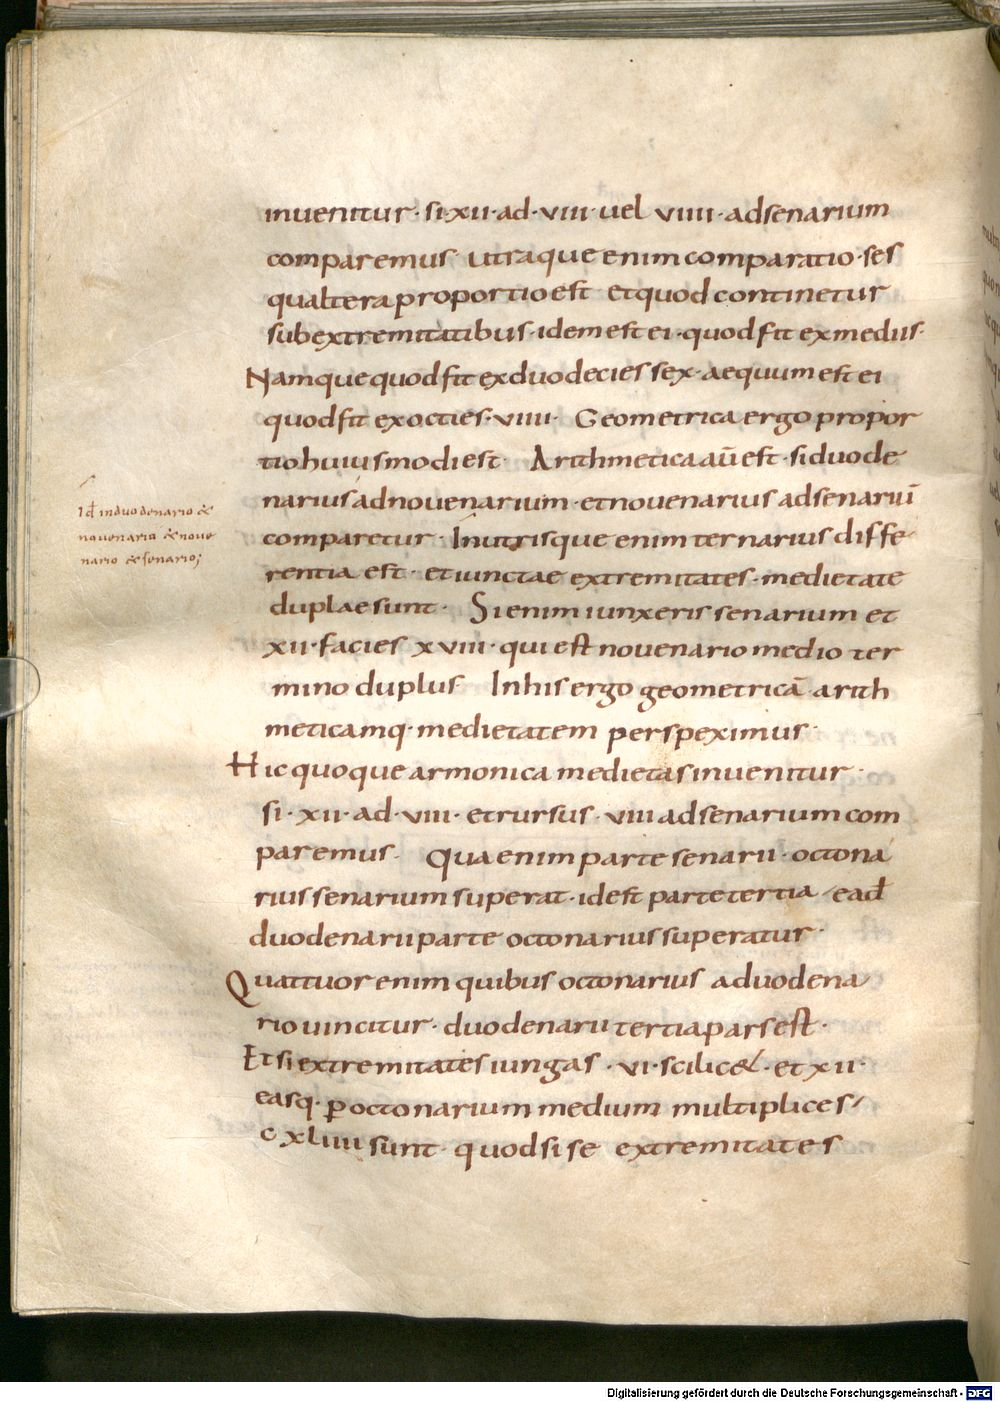 inuenitur· si·xii·ad·viii·uel viiii·adsenarium
comparemus· utraque enim comparatio·ses
qualtera proportio est et quod continetur
sub extremitatibus·idem est ei·quod fit ex mediis·
Namque quod fit ex duodecies sex·aequum est ei
quod fit ex octies·viiii· Geometrica ergo propor
tio huiusmodi est· Arithmetica aū est·si duode
narius ad nouenarium·et nouenarius ad senariū
comparetur· In utrisque enim ternarius diffe
rentia est·et iunctae extremitates·medietate
duplae sunt· Si enim iunxeris senarium et
xii·facies xviii·qui est nouenario medio ter
mino duplus· In his ergo geometricā arith
meticamq·medietatem perspeximus·
Hic quoque armonica medietas inuenitur·
si·xii·ad·viii·et rursus·viii ad senarium com
paremus· Qua enim parte senarii·octona
rius senarium superat·id est parte tertia·ead
duodenarii parte octonarius superatur·
Quattuor enim quibus octonarius a duodena
rio uincitur·duodenarii tertia pars est·
Et si extremitates iungas·vi·scilic&·et xii·
easq·ꝑ octonarium medium multiplices·
cxliiii sunt· quod si se extremitates
Id in duodenario &
nouenario & noue
nario & senario;
Digitalisierung gefördert durch die Deutsche Forschungsgemeinschaft - DFG